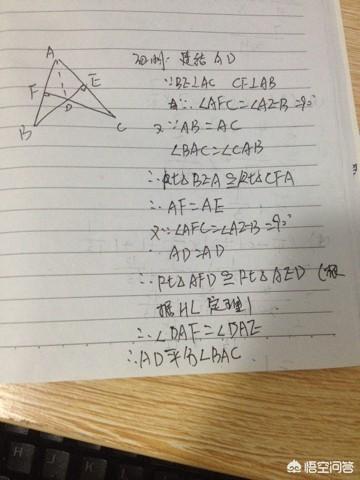 A
E
F
D
B
C
证明: 连结AD
∵BE⊥AC CF⊥AB
∴∠AFC=∠AEB=90°
又∵AB=AC
∠BAC=∠CAB
∴Rt△BEA≌Rt△CFA
∴AF=AE
又∵∠AFC=∠AEB=90°
AD=AD
∴Rt△AFD≌Rt△AED (根
据HL定理)
∴∠DAF=∠DAE
∴AD平分∠BAC
H
J
K
L
悟空问答